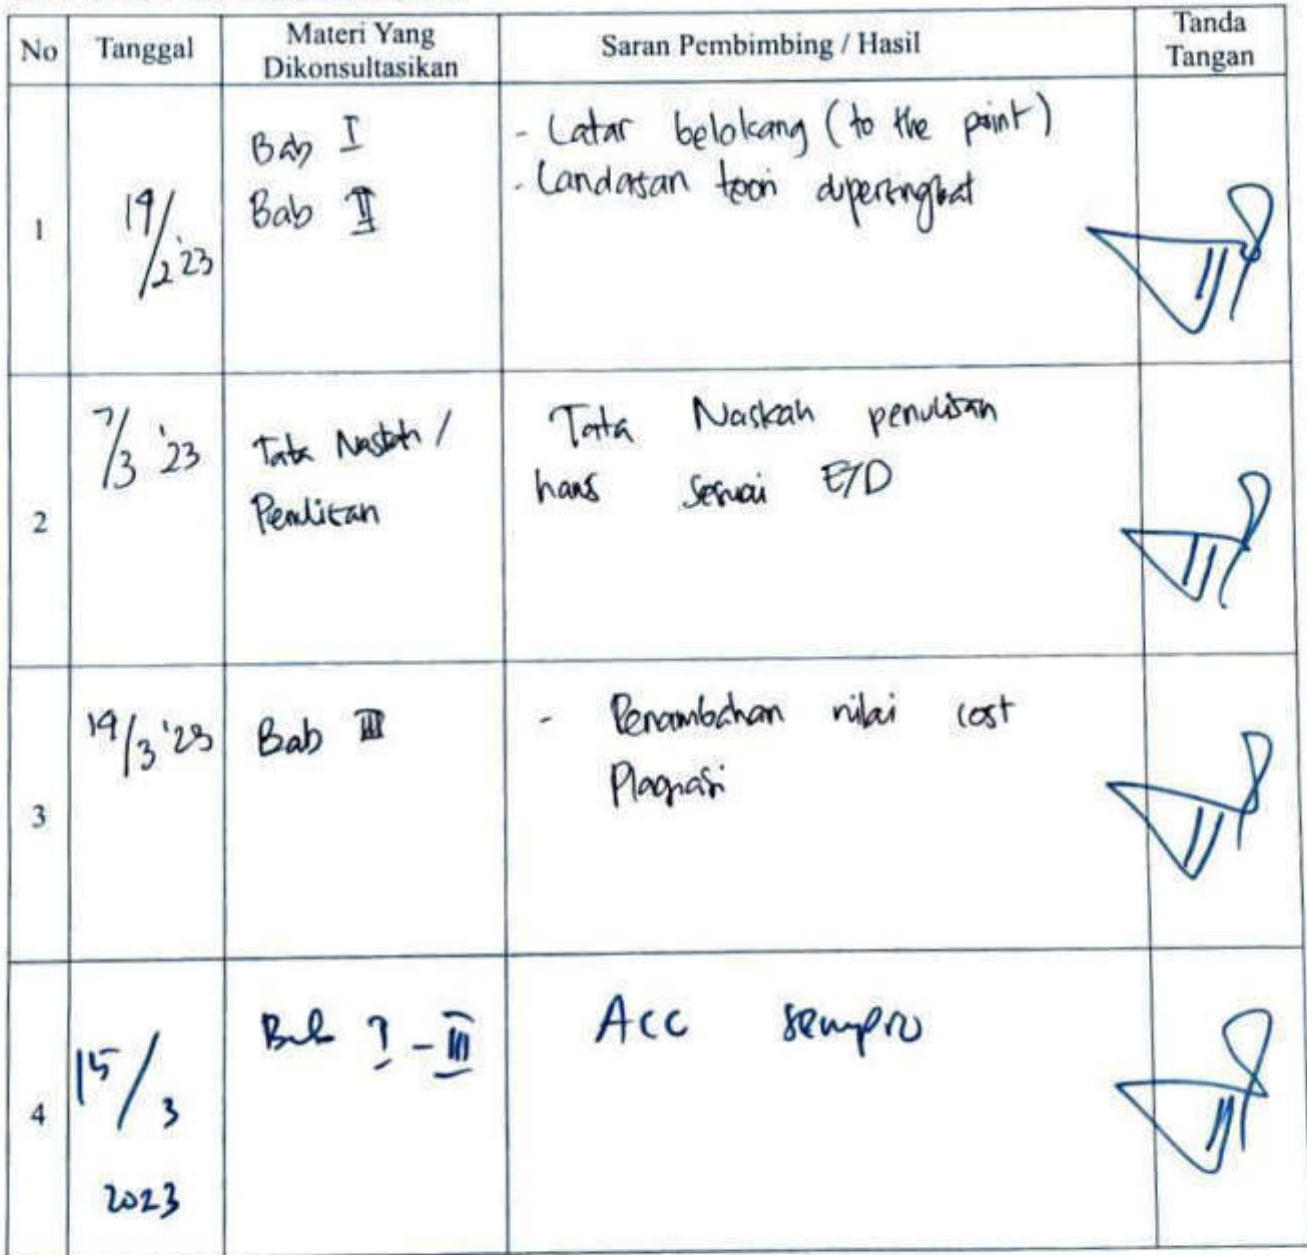 No Tanggal Materi Yang Dikonsultasikan Saran Pembimbing / Hasil Tanda Tangan
1
19/2 '23
Bab I
Bab II
- Latar belakang (to the point)
- Landasan teori dipersingkat
2
7/3 '23
Tata Naskah /
Penulisan
Tata Naskah penulisan
harus sesuai ETD
3
14/3 '23
Bab III
- Penambahan nilai cost
Plagiasi
4
15/3
2023
Bab I - III
Acc sempro